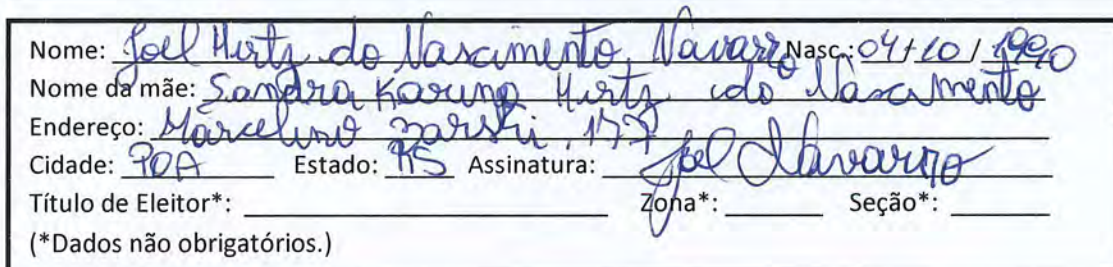 Nome: Joel Hertz do Nascimento Navarro Nasc.: 04/10/1990
Nome da mãe: Sandra Karina Hertz do Nascimento
Endereço: Marcelino 177
Cidade: POA Estado: RS Assinatura: Joel Navarro
Título de Eleitor*: Zona*: Seção*:
(*Dados não obrigatórios.)